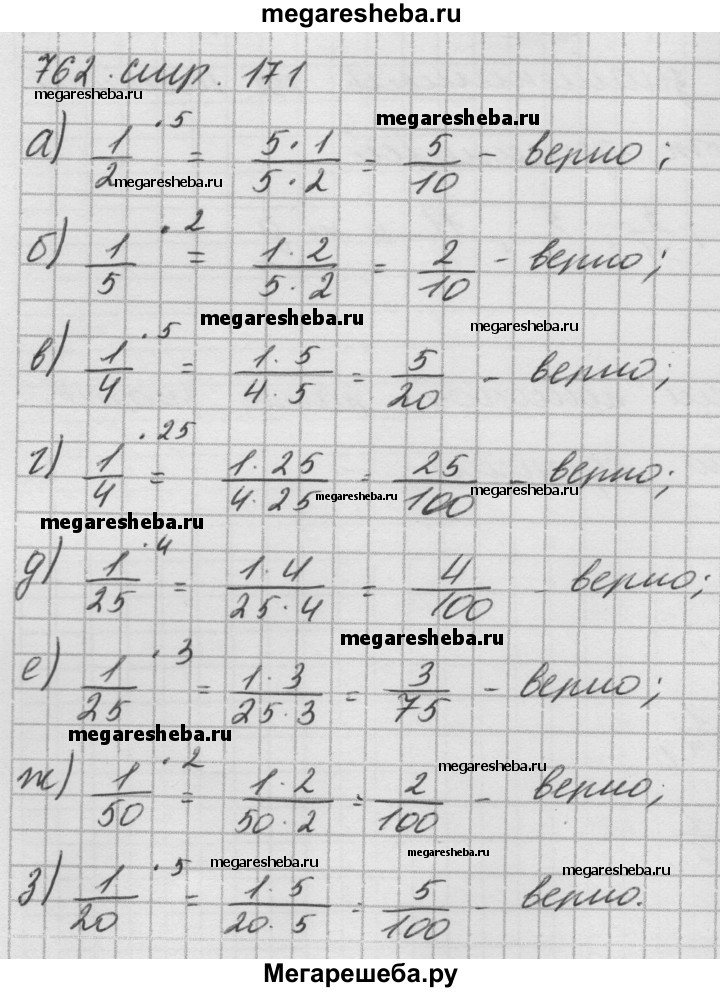 megaresheba.ru
762 стр. 171
megaresheba.ru
megaresheba.ru
а) 1/2 ·5 = 5·1/5·2 = 5/10 - верно;
megaresheba.ru
б) 1/5 ·2 = 1·2/5·2 = 2/10 - верно;
megaresheba.ru megaresheba.ru
в) 1/4 ·5 = 1·5/4·5 = 5/20 - верно;
г) 1/4 ·25 = 1·25/4·25 = 25/100 - верно;
megaresheba.ru megaresheba.ru
megaresheba.ru
д) 1/25 ·4 = 1·4/25·4 = 4/100 - верно;
megaresheba.ru
е) 1/25 ·3 = 1·3/25·3 = 3/75 - верно;
megaresheba.ru
megaresheba.ru
ж) 1/50 ·2 = 1·2/50·2 = 2/100 - верно;
megaresheba.ru megaresheba.ru megaresheba.ru
з) 1/20 ·5 = 1·5/20·5 = 5/100 - верно.
Мегарешеба.ру